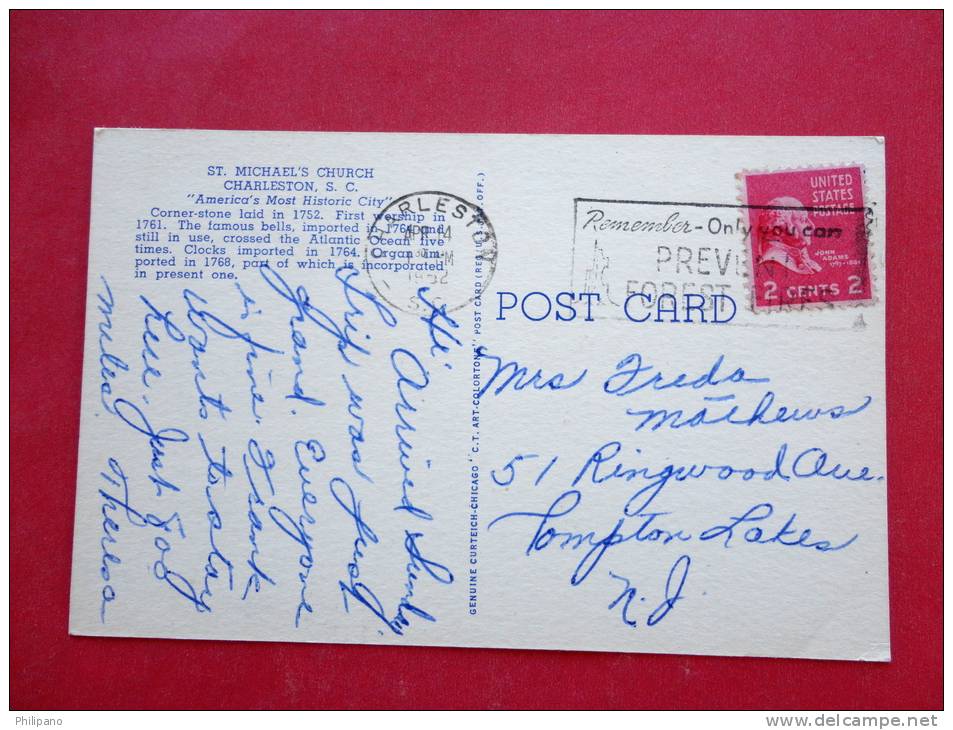 ST. MICHAEL'S CHURCH
CHARLESTON, S. C.
"America's Most Historic City"
Corner-stone laid in 1752. First worship in
1761. The famous bells, imported in 1764 and
still in use, crossed the Atlantic Ocean five
times. Clocks imported in 1764. Organ im-
ported in 1768, part of which is incorporated
in present one.
Hi'
Arrived Sunday,
Trip was just
grand. Everyone
is fine. Frank
wants to stay
here. Just 802
miles. Theresa
GENUINE CURTEICH-CHICAGO "C.T. ART-COLORTONE" POST CARD (REG. U.S. PAT. OFF.)
CHARLESTON
APR 14
30 M
1952
S.C.
Remember - Only you can
PREVENT
FOREST FIRES
UNITED
STATES
POSTAGE
JOHN
ADAMS
2 CENTS 2
POST CARD
Mrs Freda
Mathews
51 Ringwood Ave.
Pompton Lakes
N.J.
Philipano
www.delcampe.net